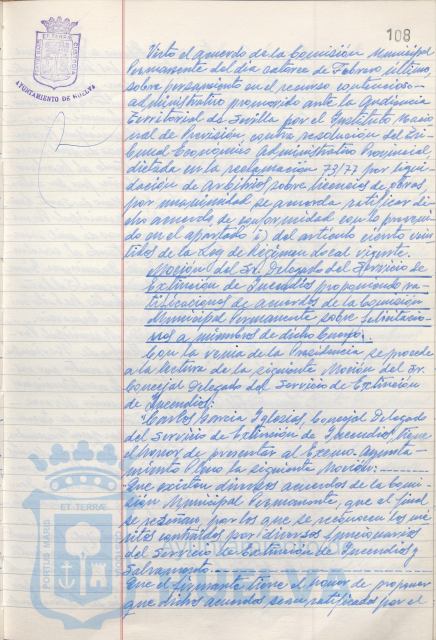 108
AYUNTAMIENTO DE HUELVA
Visto el acuerdo de la Comisión Municipal
Permanente del día catorce de Febrero último,
sobre personamiento en el recurso contencioso-
administrativo promovido ante la Audiencia
Territorial de Sevilla por el Instituto Nacio
nal de Previsión, contra resolución del Tri-
bunal Económico Administrativo Provincial,
dictada en la reclamación 73/77 por liqui-
dación de arbitrios sobre licencias de obras,
por unanimidad se acuerda ratificar di-
cho acuerdo de conformidad con lo preveni-
do en el apartado i) del artículo ciento vein-
tiuno de la Ley de Régimen Local vigente.
Moción del Sr. Delegado del Servicio de
Extinción de Incendios proponiendo ra-
tificaciones de acuerdos de la Comisión
Municipal Permanente sobre felicitacio-
nes a miembros de dicho Cuerpo.
Con la venia de la Presidencia se procede
a la lectura de la siguiente Moción del Sr.
Concejal Delegado del Servicio de Extinción
de Incendios:
"Carlos García Iglesias, Concejal Delegado
del Servicio de Extinción de Incendios, tiene
el honor de presentar al Excmo. Ayunta-
miento Pleno la siguiente Moción:
Que existen diversos acuerdos de la Comi-
sión Municipal Permanente, que al final
se reseñan, por los que se reconocen los mé-
ritos contraídos por diversos funcionarios
del Servicio de Extinción de Incendios y
Salvamento.
Que el firmante tiene el honor de proponer
que dichos acuerdos sean ratificados por el
ET TERRAE
PORTUS MARIS